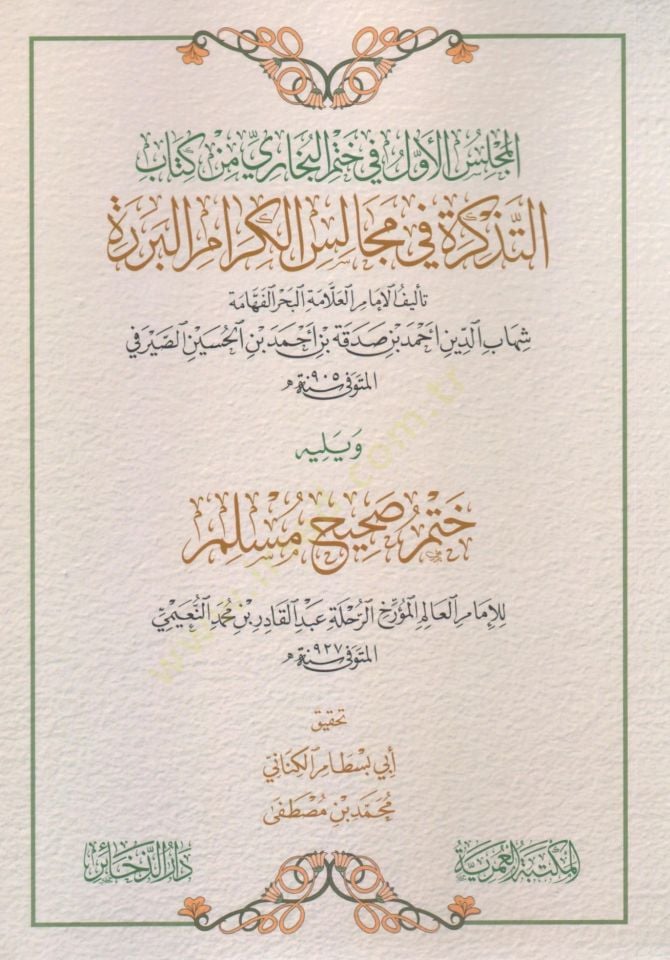 المجلسُ الأوّلُ في ختمِ البخاريِّ مِنْ كتابِ
التَّذْكِرَةِ فِي مَجَالِسِ الكِرَامِ البَرَرَةِ
تأليفُ الإمامِ العلَّامةِ البحرِ الفهَّامة
شِهابِ الدِّين أحمدَ بنِ صدقةَ بنِ أحمدَ بنِ الحُسينِ الصَّيرفي
المتوفى سنة ٩٠٥ هـ
وَيَليه
خَتْمُ صَحِيحِ مُسْلِمٍ
للإمامِ العالمِ المؤرِّخِ الرُّحلةِ عبدِ القادرِ بنِ محمدٍ النُّعَيميِّ
المتوفى سنة ٩٢٧ هـ
تحقيق
أبي بسطام الكنانيّ
مُحمَّد بن مُصْطفى
المكتبة العُمريَّة
دَارُ الذَّخائِر